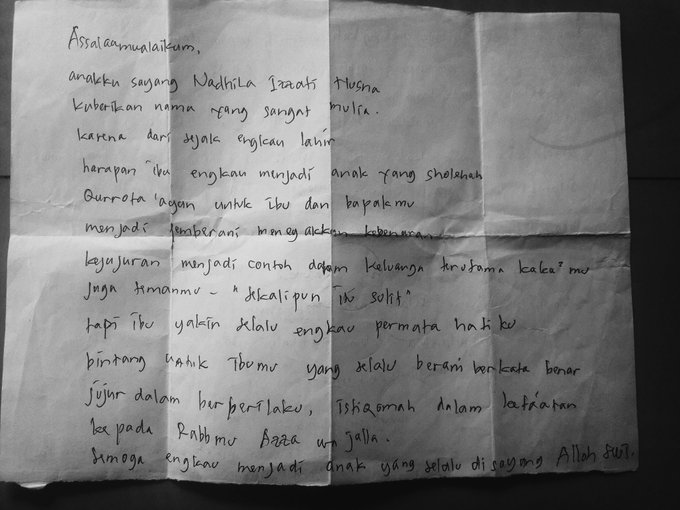 Assalaamualaikum,
anakku sayang Nadhila Izzati Husna
kuberikan nama yang sangat mulia.
karena dari sejak engkau lahir
harapan ibu engkau menjadi anak yang sholehah
Qurrota 'ayun untuk ibu dan bapakmu
menjadi pemberani menegakkan kebenaran
kejujuran menjadi contoh dalam keluarga terutama kaka² mu
juga temanmu - "sekalipun itu sulit"
tapi ibu yakin selalu engkau permata hatiku
bintang untuk ibumu yang selalu berani berkata benar
jujur dalam berperilaku, istiqomah dalam keta'atan
kepada Rabbmu Azza wa jalla.
semoga engkau menjadi anak yang selalu disayang Allah SWT.